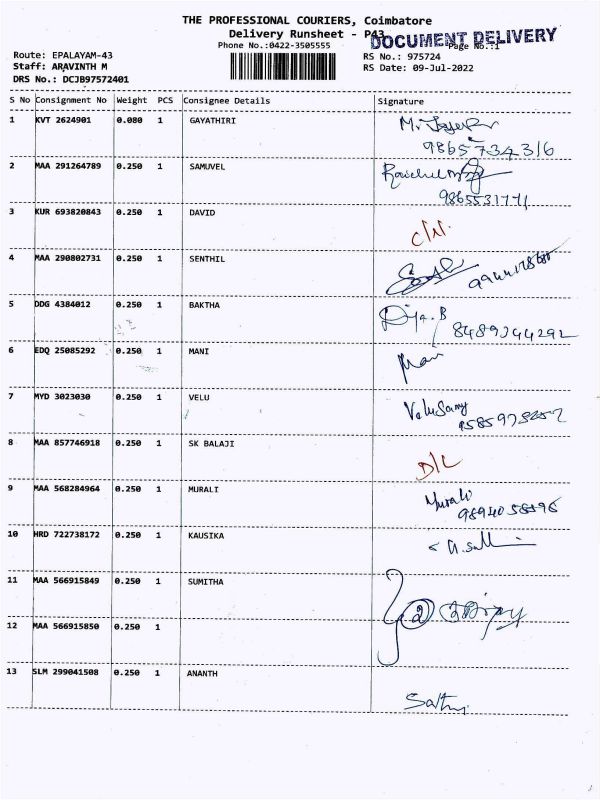 THE PROFESSIONAL COURIERS, Coimbatore
Delivery Runsheet - P43
DOCUMENT DELIVERY
Phone No.:0422-3505555
Page No.:1
Route: EPALAYAM-43
RS No.: 975724
Staff: ARAVINTH M
RS Date: 09-Jul-2022
DRS No.: DCJB97572401
S No Consignment No Weight PCS Consignee Details Signature
1 KVT 2624901 0.080 1 GAYATHIRI
9865734316
2 MAA 291264789 0.250 1 SAMUVEL
9865531771
3 KUR 693820843 0.250 1 DAVID
4 MAA 290802731 0.250 1 SENTHIL
5 DDG 4384012 0.250 1 BAKTHA
6 EDQ 25085292 0.250 1 MANI
Mani
7 MYD 3023030 0.250 1 VELU
Velusamy
8 MAA 857746918 0.250 1 SK BALAJI
D/L
9 MAA 568284964 0.250 1 MURALI
Murali
10 HRD 722738172 0.250 1 KAUSIKA
11 MAA 566915849 0.250 1 SUMITHA
2
12 MAA 566915850 0.250 1
13 SLM 299041508 0.250 1 ANANTH